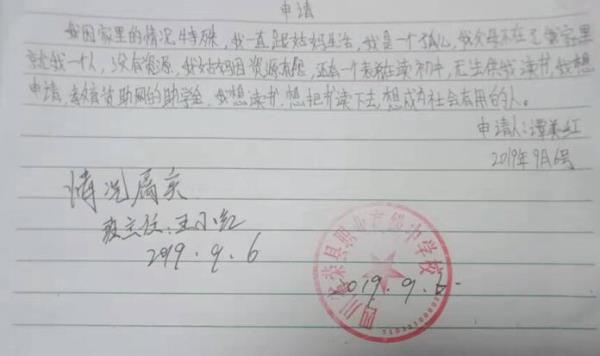 申请
我因家里的情况特殊，我一直跟姑妈生活，我是一个孤儿，我父母不在了，我家里
就我一个人，没有资源，我姑妈因资源有限，还有一个表弟在读初中，无法供我读书，我想
申请，素馨资助网的助学金，我想读书，想把书读下去，想成为社会有用的人。
申请人：谭美红
2019年9月6号
情况属实
班主任：王小红
2019.9.6
四川省荣县职业高级中学校
2019.9.6